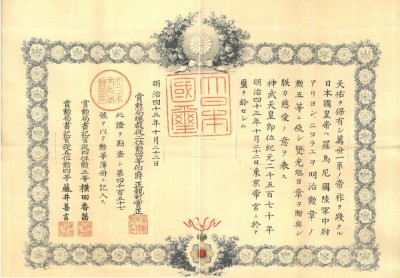 天佑ヲ保有シ萬世一系ノ帝祚ヲ踐タル
日本國皇帝ハ羅馬尼國陸軍中尉
アリヨン、ニコラエヲ明治勲章ノ
勲五等ニ叙シ雙光旭日章ヲ贈與シ
朕カ慈愛ノ意ヲ表ス
神武天皇即位紀元二千五百七十年
明治四十三年十月二十二日東京帝宮ニ於テ
璽ヲ鈐セシム
大日本
國璽
明治四十三年十月二十二日
賞勲局總裁從二位勲一等伯爵正親町實正
此證ヲ勘査シ第四千百五十七
號ヲ以テ勲等簿冊ニ記入ス
賞勲局書記官從四位勲三等 横田香苗
賞勲局書記官從五位勲四等 藤井善言